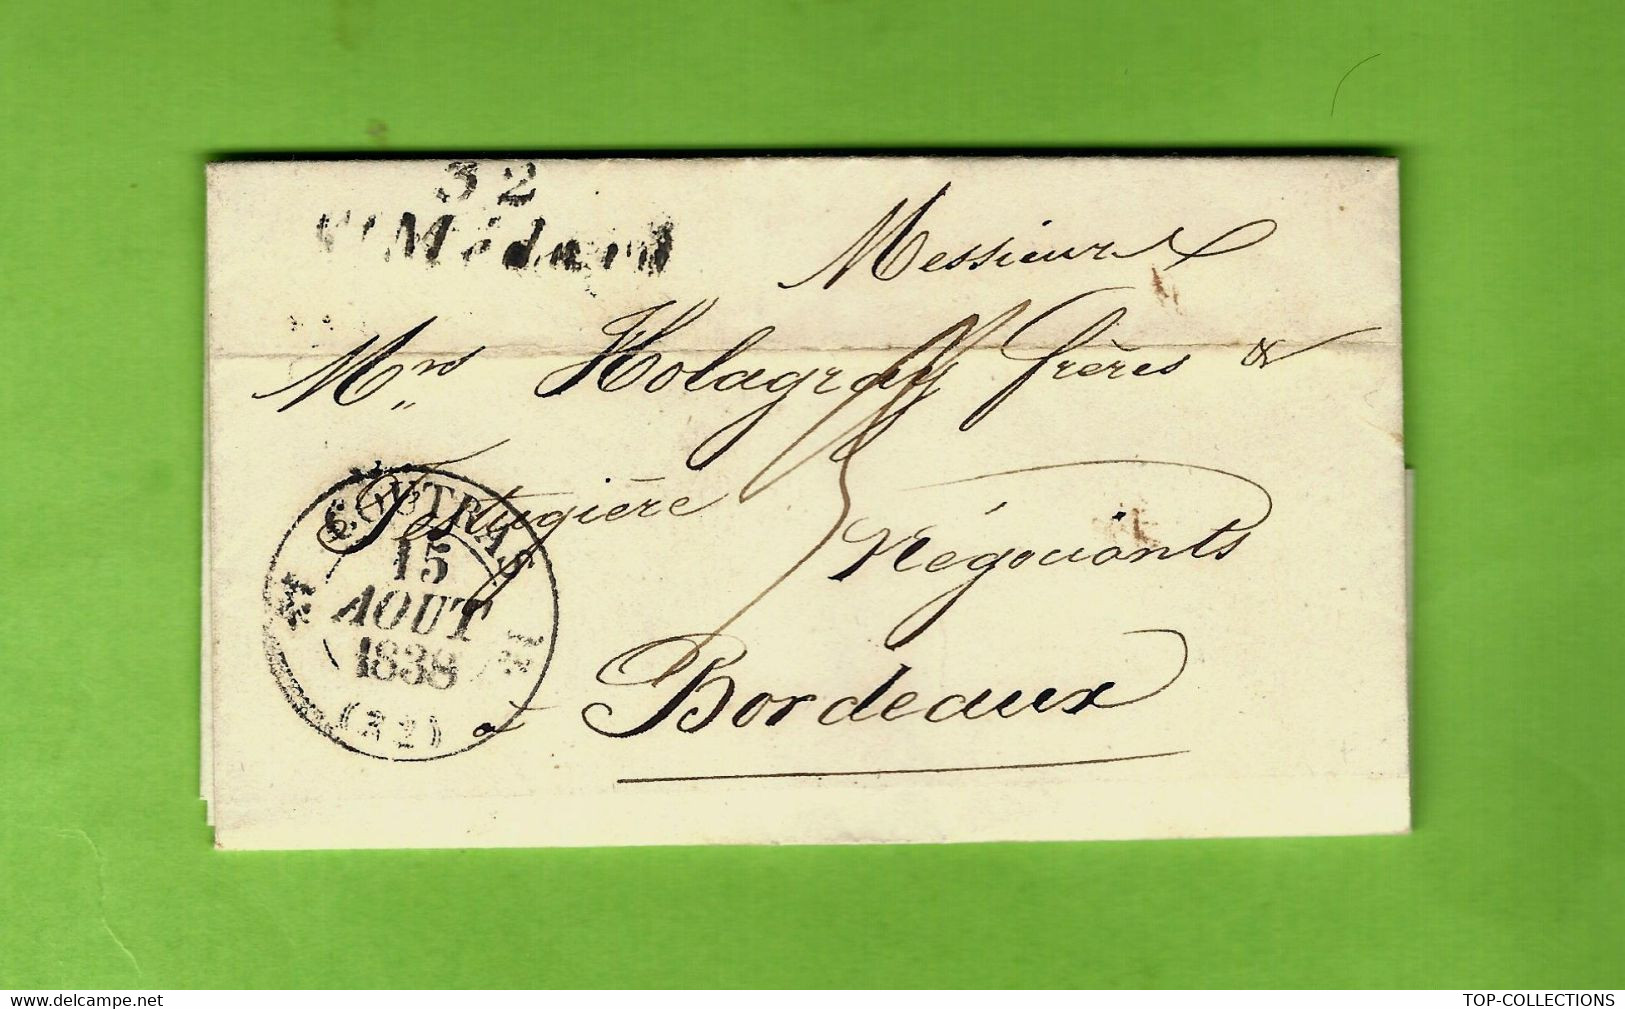 32
St Médard
Messieurs
Mrs Holagray frères &
Festugière Négociants
à Bordeaux
3
COUTRAS
15
AOUT
1838
(32)
delcampe.net
TOP-COLLECTIONS